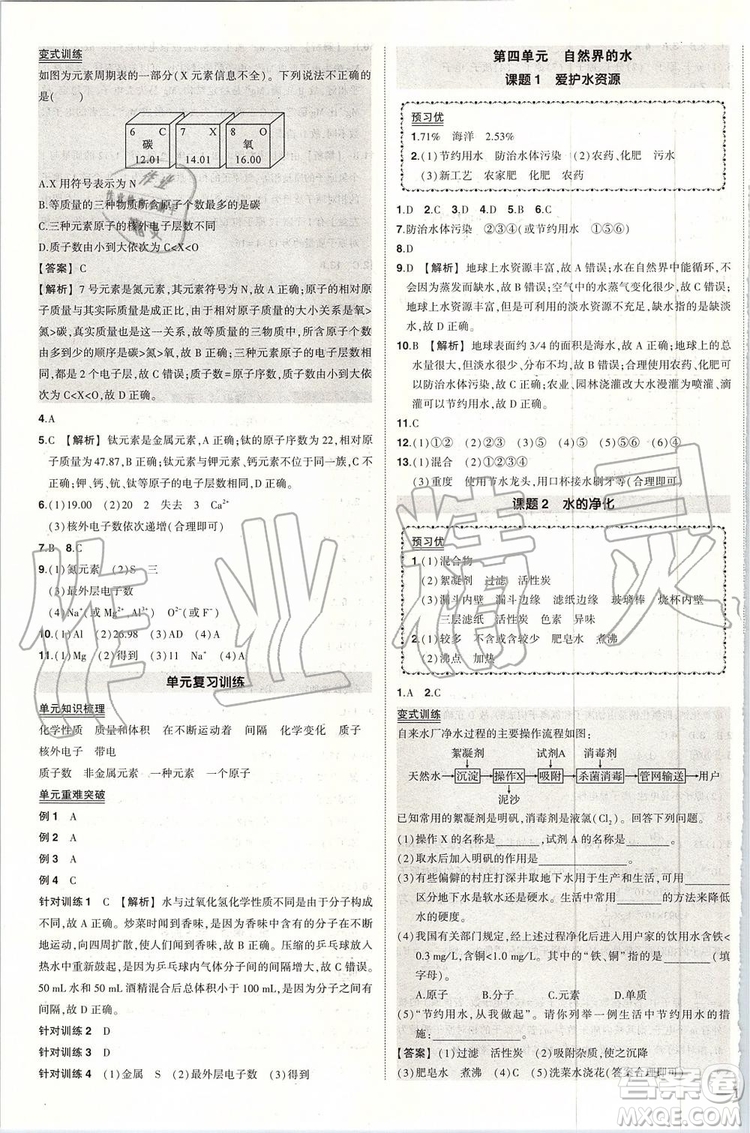 变式训练
如图为元素周期表的一部分(X 元素信息不全)。下列说法不正确的
是(　　)
6 C 碳 12.01
7 X 14.01
8 O 氧 16.00
A.X 用符号表示为 N
B.等质量的三种物质所含原子个数最多的是碳
C.三种元素的原子的核外电子层数不同
D.质子数由小到大依次为 C<X<O
【答案】C
【解析】7 号元素是氮元素,其元素符号为 N,故 A 正确;相对原子
质量与其实际质量成正比,由于它们相对原子质量的大小关系是氧>
氮>碳,故相等质量的三物质中,所含原子个数
由多到少的大小关系是碳>氮>氧,故 B 正确;三种元素的电子层数相同,
都是 2 个电子层,故 C 错误;质子数=原子序数,所以质子数由小到大依
次为 C<X<O,故 D 正确。
4.A
5.C 【解析】钛元素是金属元素,A 正确;钛的原子序数为 22,B 正确;钛的相对原子
质量为 47.87,C 错误;钛元素与钾元素、钙元素位于同一周期,D
正确。
6.(1)19.00 (2)20 失去 3 Ca²⁺
(3)核外电子数依次递增(合理即可)
7.B 8.C
9.(1)氮元素 (2)S 三
(3)最外层电子数
(4)Na⁺(或 Mg²⁺、Al³⁺) O²⁻(或 F⁻)
10.(1)Al (2)26.98 (3)AD (4)A
11.(1)Mg (2)得到 (3)13 (4)Na⁺
单元复习训练
单元知识梳理
化学性质 质量和体积 在不断运动着 间隔 化学变化 质子
核外电子 带电
质子数 非金属元素 一种元素 一个原子
单元重难突破
例 1 A
例 2 A
例 3 A
例 4 C
针对训练 1 C 【解析】水与过氧化氢化学性质不同是由于分子构成
不同,故 A 正确。炒菜时闻到香味,是因为香味的分子在不断
运动,向四周扩散,故 B 正确。压缩的乒乓球放入
热水中重新鼓起来,是因为乒乓球内气体分子间的间隔增大,故 C 错误。
50 mL 水和 50 mL 酒精混合后总体积小于 100 mL,是因为分子之间有
间隔,故 D 正确。
针对训练 2 D
针对训练 3 D
针对训练 4 (1)金属 S (2)最外层电子数 (3)得到
第四单元 自然界的水
课题 1 爱护水资源
预习优
1.71% 海洋 2.53%
2.(1)节约用水 防治水体污染 (2)农药、化肥 污水
(3)新工艺 农家肥 化肥 农药
1.D 2.C 3.B 4.D 5.D 6.B
7.防治水体污染 ②③④(或①⑤)
8.D
9.D 【解析】地球上水资源丰富,故 A 错误;水在自然界中能循环,不会
因为蒸发而缺水,故 B 错误;空气中的水蒸气变化很多,
故 C 错误;地球上可利用的淡水资源不充足,是
缺水的原因,故 D 正确。
10.B 【解析】地球表面约 3/4 的面积是海水,故 A 正确;地球上的总
水量很大,但淡水很少、分布不均,故 B 错误;合理使用农药、化肥
可以防治水体污染,故 C 正确;农业、园林浇灌改大水漫灌为喷灌、滴灌
可节约用水,故 D 正确。
11.C
12.(1)①② (2)④ (3)③ (4)①②
13.(1)混合 (2)①②④
(3)重度 使用节水龙头,用口杯接水刷牙等(合理即可)
课题 2 水的净化
预习优
1.(1)混合物
(2)絮凝剂 过滤 活性炭
(3)漏斗内壁 漏斗边缘 滤纸边缘 玻璃棒 烧杯内壁
三层滤纸 活性炭 色素 异味
2.(1)较多 不含或含较少 肥皂水 煮沸
(2)沸点 加热
1.A 2.C
变式训练
自来水厂净水过程的主要操作流程如图:
絮凝剂 试剂A 消毒剂
天然水→沉淀→操作X→吸附→杀菌消毒→管网输送→用户
泥沙
已知常用的絮凝剂是明矾,消毒剂是液氯(Cl₂)。回答下列问题。
(1)操作 X 的名称是________,试剂 A 的名称是________。
(2)取水后加入明矾的作用是________。
(3)有些偏僻的村庄打深井取地下水用于生产和生活,可用________
区分地下水是软水还是硬水。生活中可用________的方法来降低
水的硬度。
(4)我国有关部门规定,经过净化后引入用户家的饮用水含铁<
0.3 mg/L,含铜<1.0 mg/L。其中的“铁、铜”是指________(填
字母)。
A.原子 B.分子 C.元素 D.单质
(5)“节约用水,从我做起”。请列举一例生活中节约用水的措
施:________。
【答案】(1)过滤 活性炭 (2)吸附杂质,使之沉降
(3)肥皂水 煮沸 (4)C (5)洗菜水浇花(合理即可)
作业精灵
答案圈
MXQE.COM